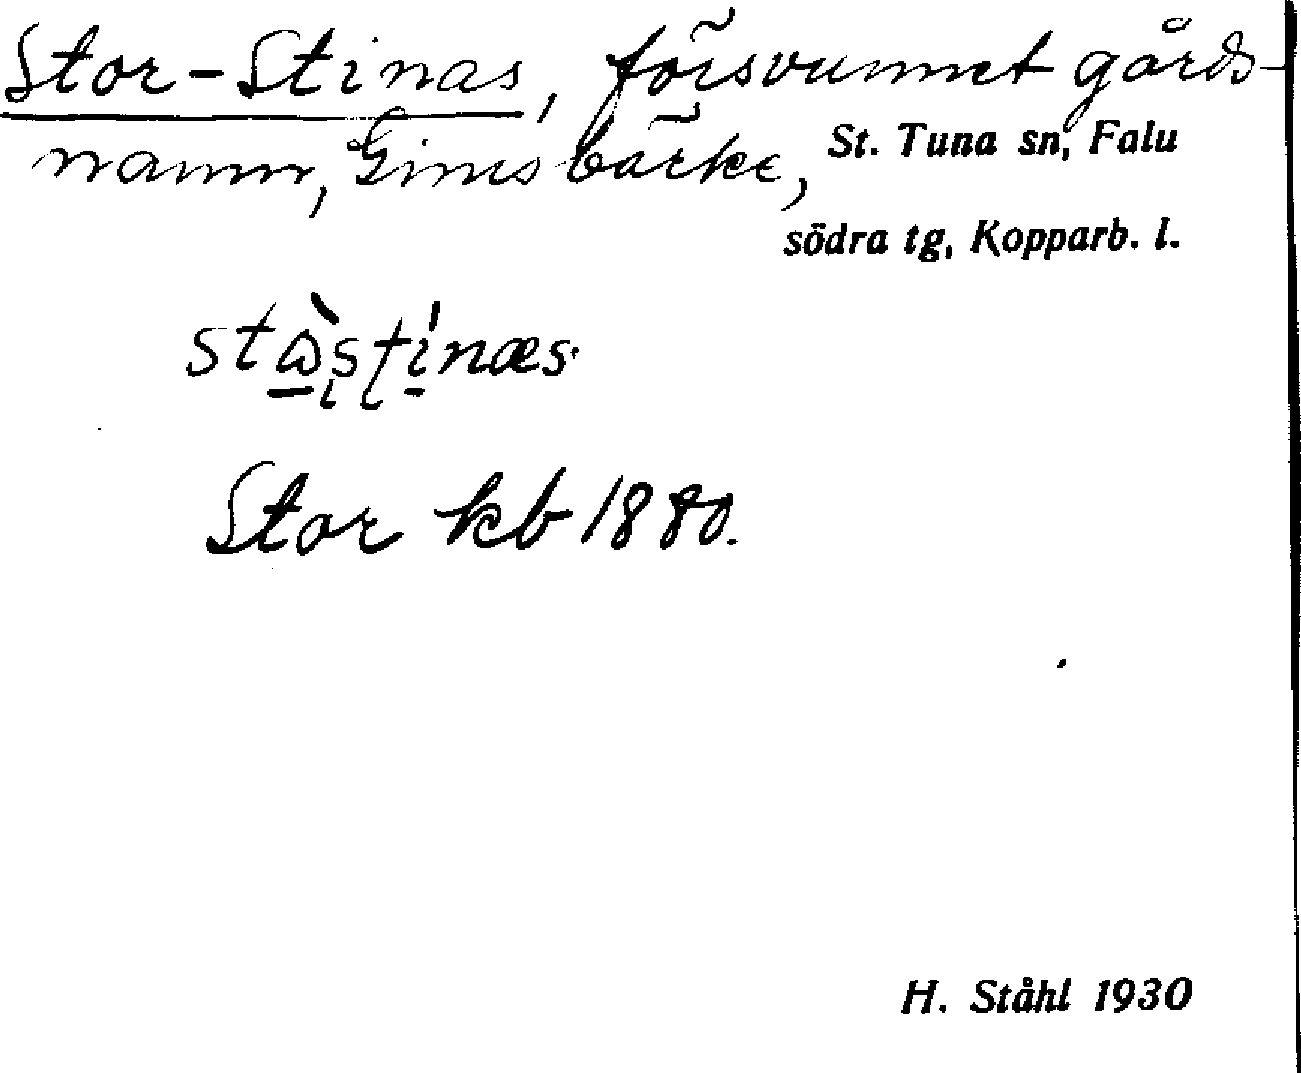 Stor-Stinas, försvunnet gårds-
namn, Gimsbärke, St. Tuna sn, Falu
södra tg, Kopparb. l.
Stor kb 1880.
H. Ståhl 1930